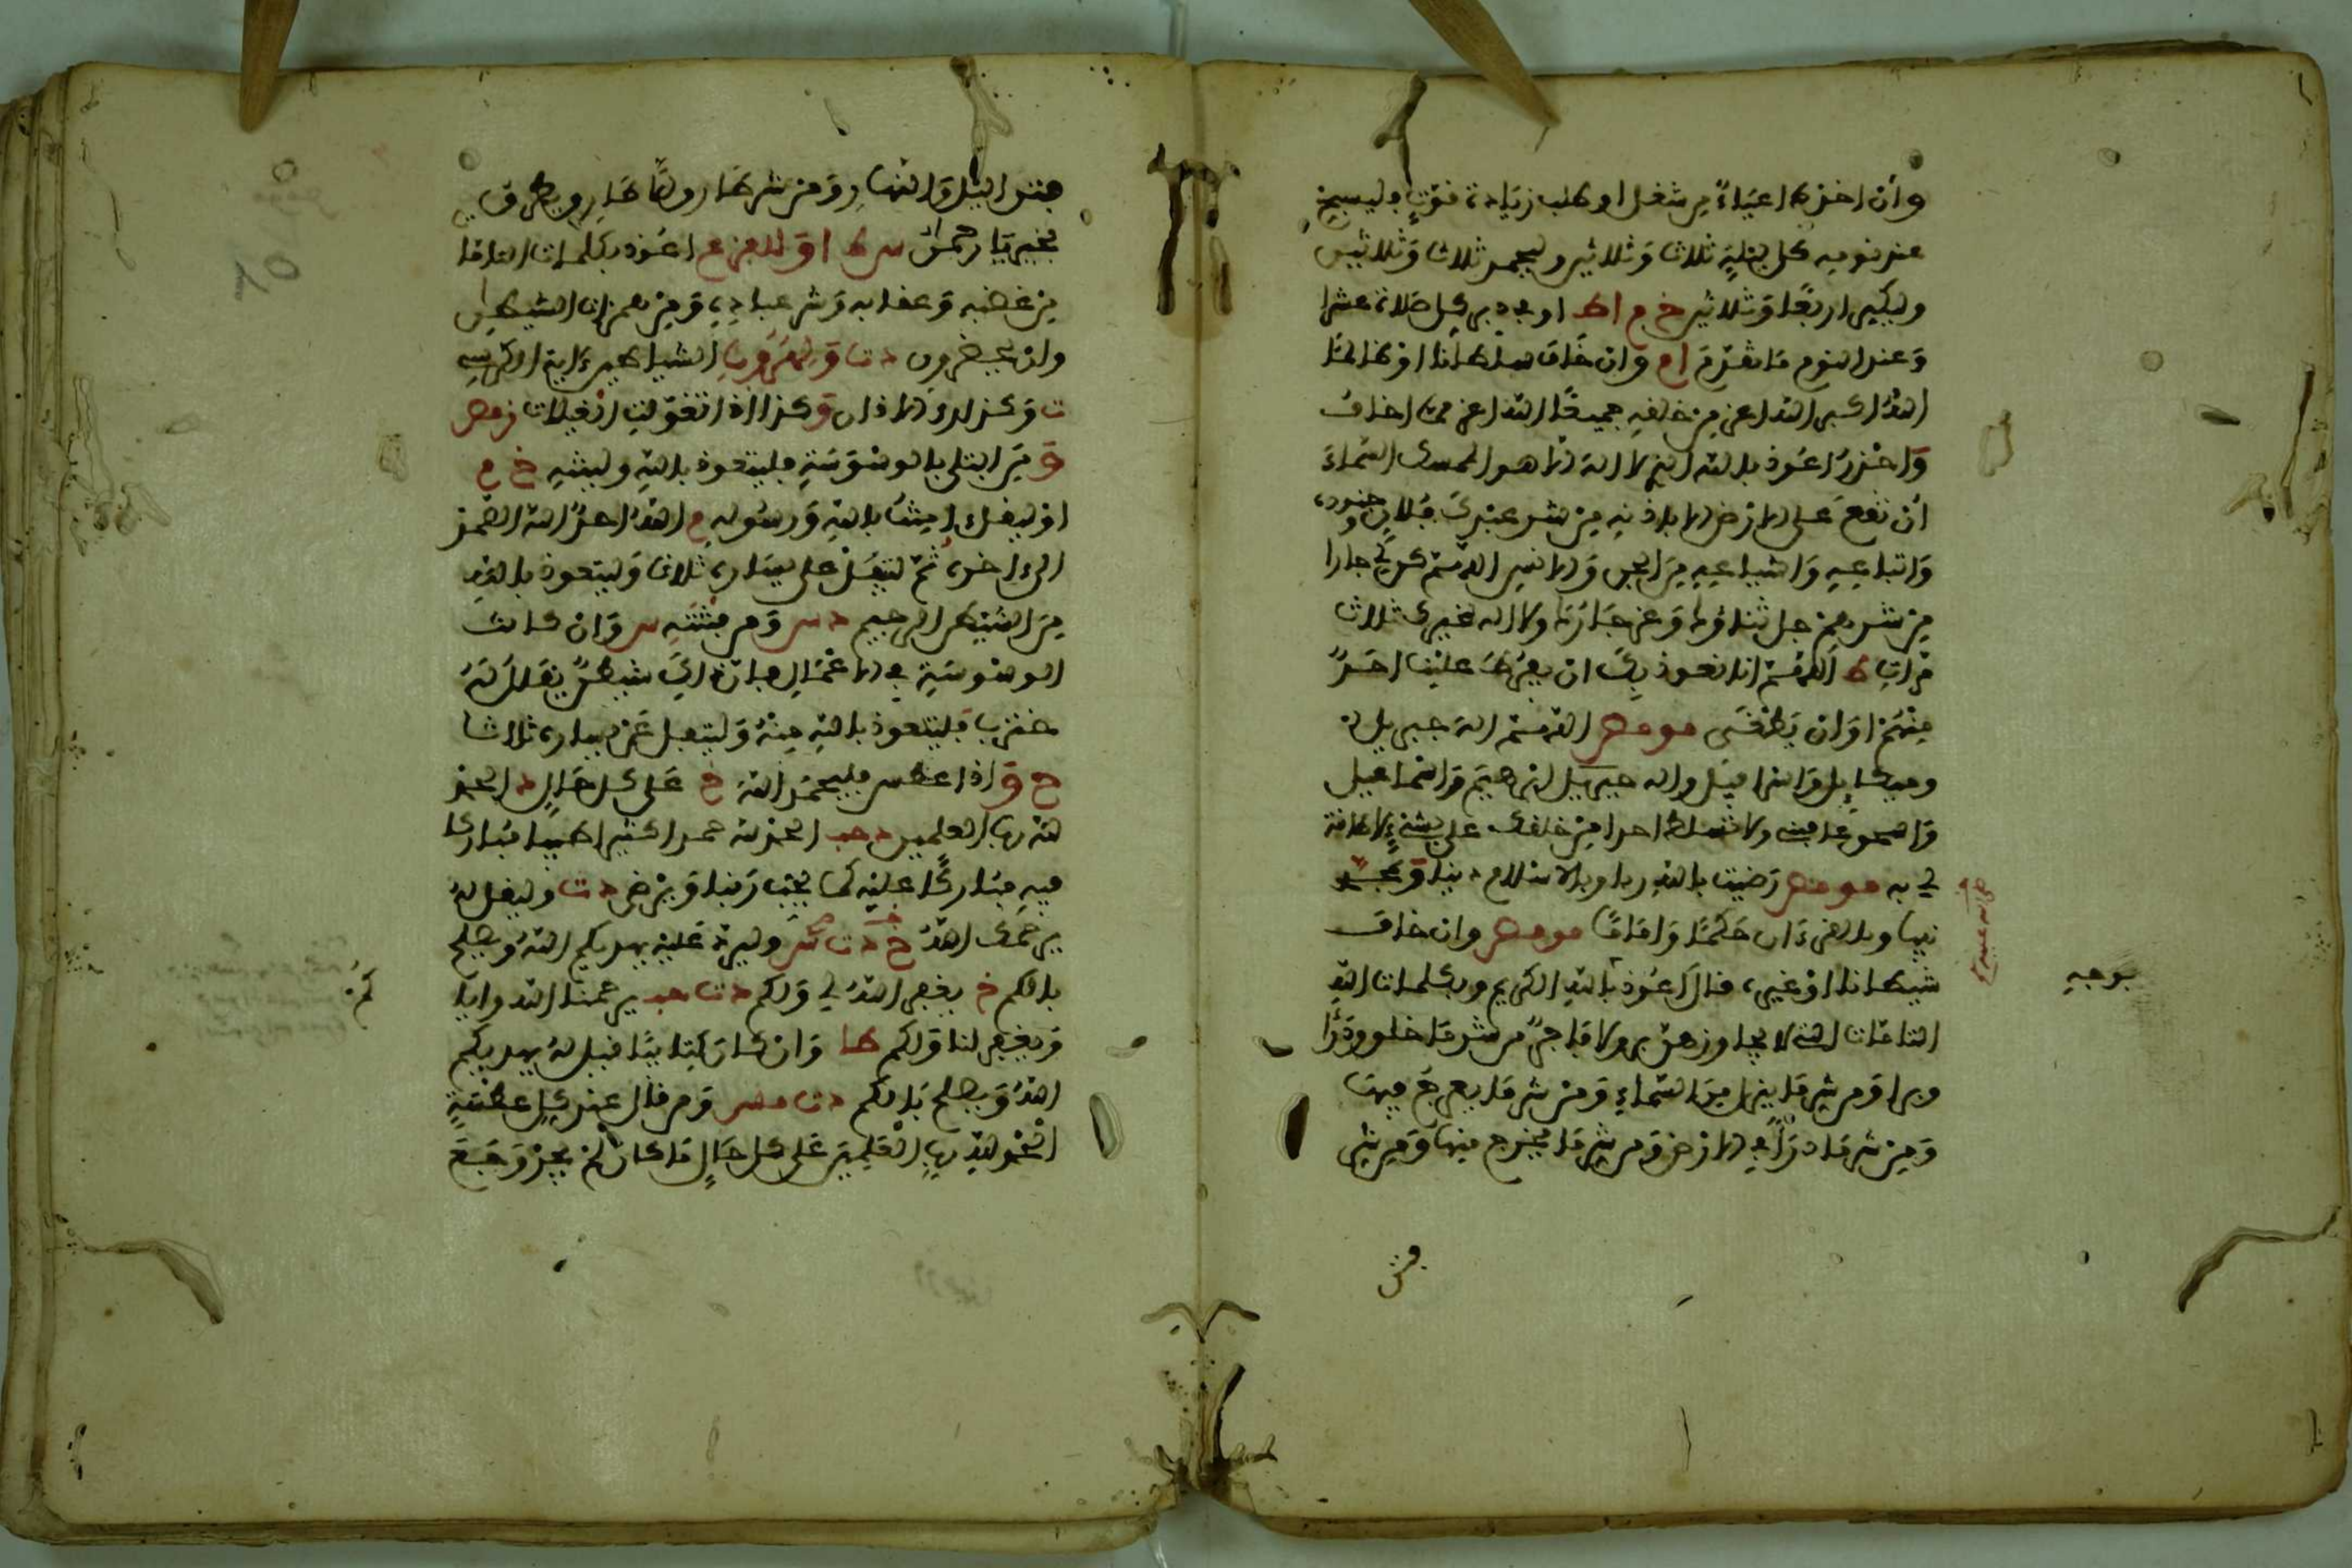 وان اخذه اعياء من شغل او طلب زيادة قوة فليسبح
عند نومه كل ليلة ثلاثا وثلاثين وليحمد ثلاثا وثلاثين
وليكبر اربعا وثلاثين خ م اط او في دبر كل صلاة عشرا
وعند النوم ما تقدم ا م وان خاف سلطانا او ظالما
الله اكبر الله اعز من خلقه جميعا الله اعز مما اخاف
واحذر اعوذ بالله الذي لا اله الا هو الممسك السماء
ان تقع على الارض الا باذنه من شر عبدك فلان وجنوده
واتباعه واشياعه من الجن والانس اللهم كن لي جارا
من شرهم جل ثناؤك وعز جارك ولا اله غيرك ثلاث
مرات ط اللهم انا نعوذ بك ان يفرط علينا احد
منهم او ان يطغى مو مص اللهم اله جبريل
وميكايل واسرافيل واله ابرهيم واسماعيل
واسحق عافني ولا تسلطن احدا من خلقك علي بشيء لا طاقة
لي به مو مص رضيت بالله ربا وبالاسلام دينا وبمحمد
صلى الله عليه وسلم
نبيا وبالقرءان حكما واماما مو مص وان خاف
شيطانا او غيره قال اعوذ بالله الكريم وبكلمات الله
بوجه
التامات التي لا يجاوزهن بر ولا فاجر من شر ما خلق وذرا
وبرا ومن شر ما ينزل من السماء ومن شر ما يعرج فيها
ومن شر ما ذرا في الارض ومن شر ما يخرج منها ومن شر
فتن
فتن اليل والنهار ومن شر كل طارق الا طارق يطرق
بخير يا رحمن س ط او للفزع اعوذ بكلمات الله التامات
من غضبه وعقابه وشر عباده ومن همزات الشيطين
وان يحضرون د ت ولهرب الشياطين ءاية الكرسي
ت وكذا الاذان وكذا اذا تغولت الغيلان م مص
ومن ابتلي بالوسوسة فليتعوذ بالله ولينته خ م
او ليقل ءامنت بالله ورسوله م الله احد الله الصمد
الى اخره ثم ليتفل على يساره ثلاثا وليتعوذ بالله
من الشيطن الرجيم د س ومن فتنته س وان كانت
الوسوسة في الاعمال فان ذلك شيطن يقال له
خنزب فليتعوذ بالله منه وليتفل عن يساره ثلاثا
م واذا عطس فليحمد الله خ على كل حال د الحمد
لله رب العلمين د حب الحمد لله حمدا كثيرا طيبا مباركا
فيه مباركا عليه كما يحب ربنا ويرضى د ت وليقل له
يرحمك الله خ د ت س وليرد عليه يهديكم الله ويصلح
بالكم خ يغفر الله لي ولكم د ت حب يرحمنا الله واياكم
كم
ويغفر لنا ولكم طا وان كان كتابيا قيل له يهديكم
الله ويصلح بالكم د ت مس ومن قال عند كل عطسة
الحمد لله رب العلمين على كل حال ما كان لم يجد وجع